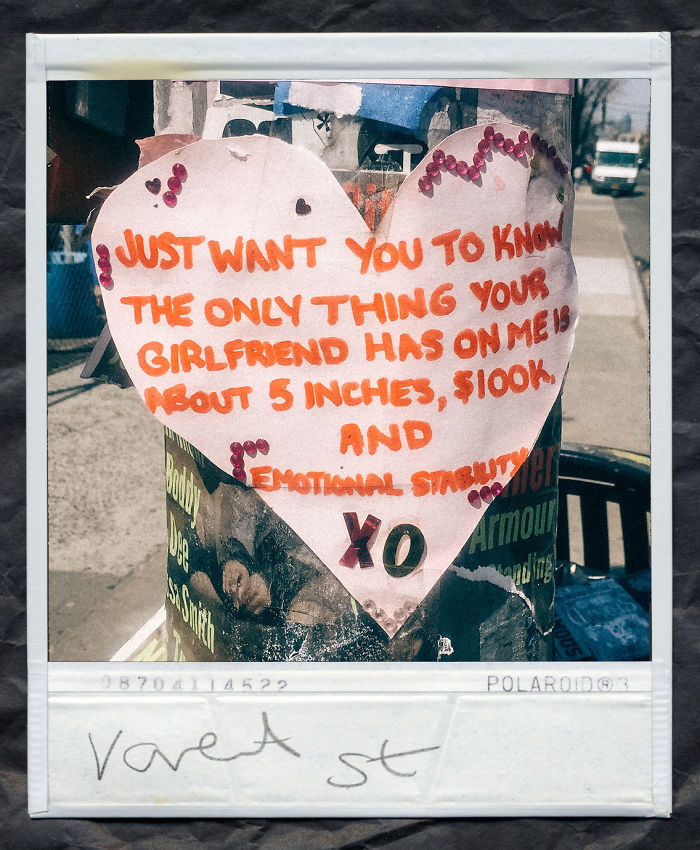 JUST WANT YOU TO KNOW
THE ONLY THING YOUR
GIRLFRIEND HAS ON ME IS
ABOUT 5 INCHES, $100K,
AND
EMOTIONAL STABILITY
XO
Daddy
Dee
Smith
Armour
POLAROID®3
st